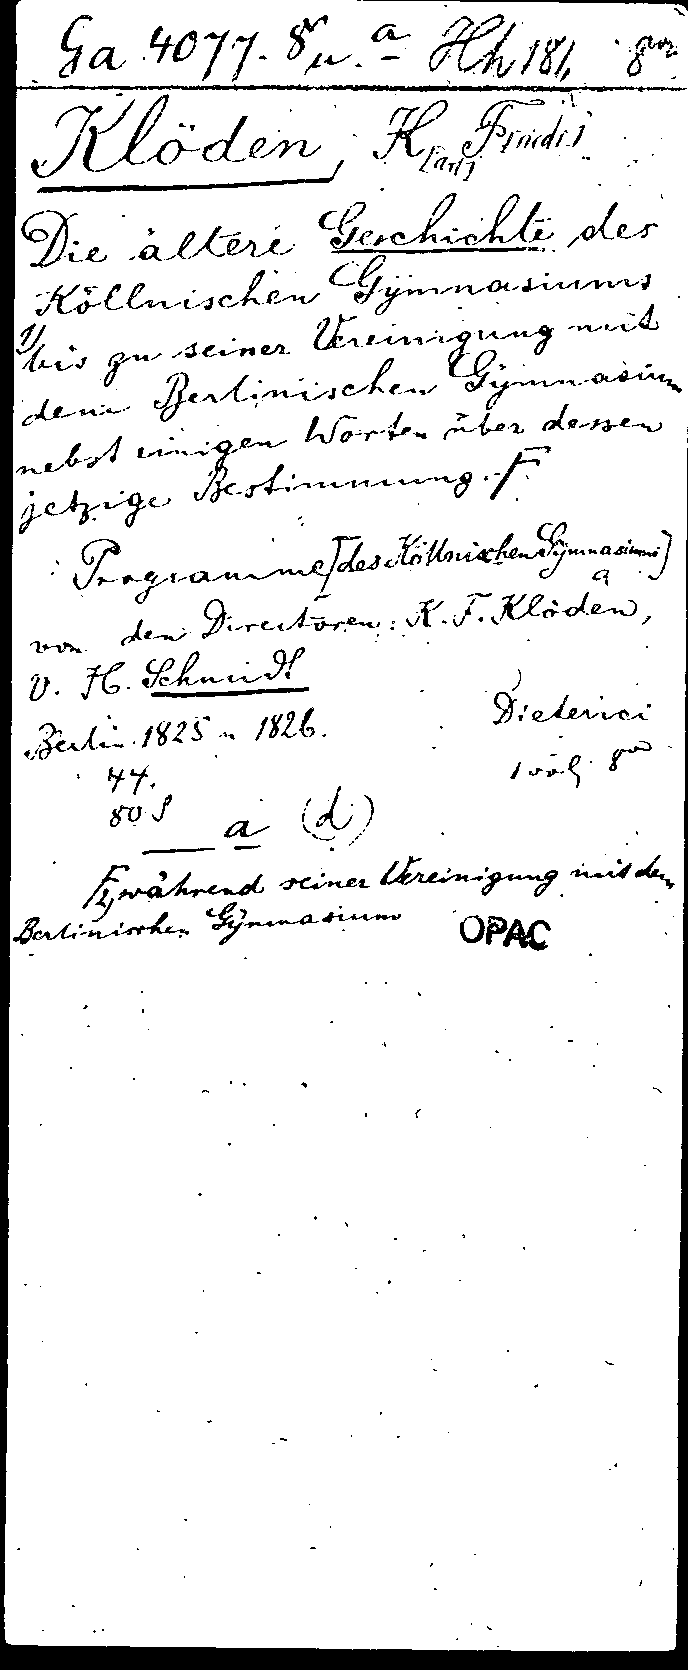 Ga 4077. 8º u. a Hh 181, 8vo
Klöden, K[arl] Fried[r]
Die ältere Geschichte des
Köllnischen Gymnasiums
1) bis zu seiner Vereinigung mit
dem Berlinischen Gymnasium
nebst einigen Worten über dessen
jetzige Bestimmung. F.
Programme [des Köllnischen Gymnasiums]
a
von den Directoren: K. F. Klöden,
V. H. Schmidt
Berlin 1825 u 1826. Dieterici
44. 1 vol. 8vo
80 S
— a (d)
F 2) während seiner Vereinigung mit dem
Berlinischen Gymnasium OPAC